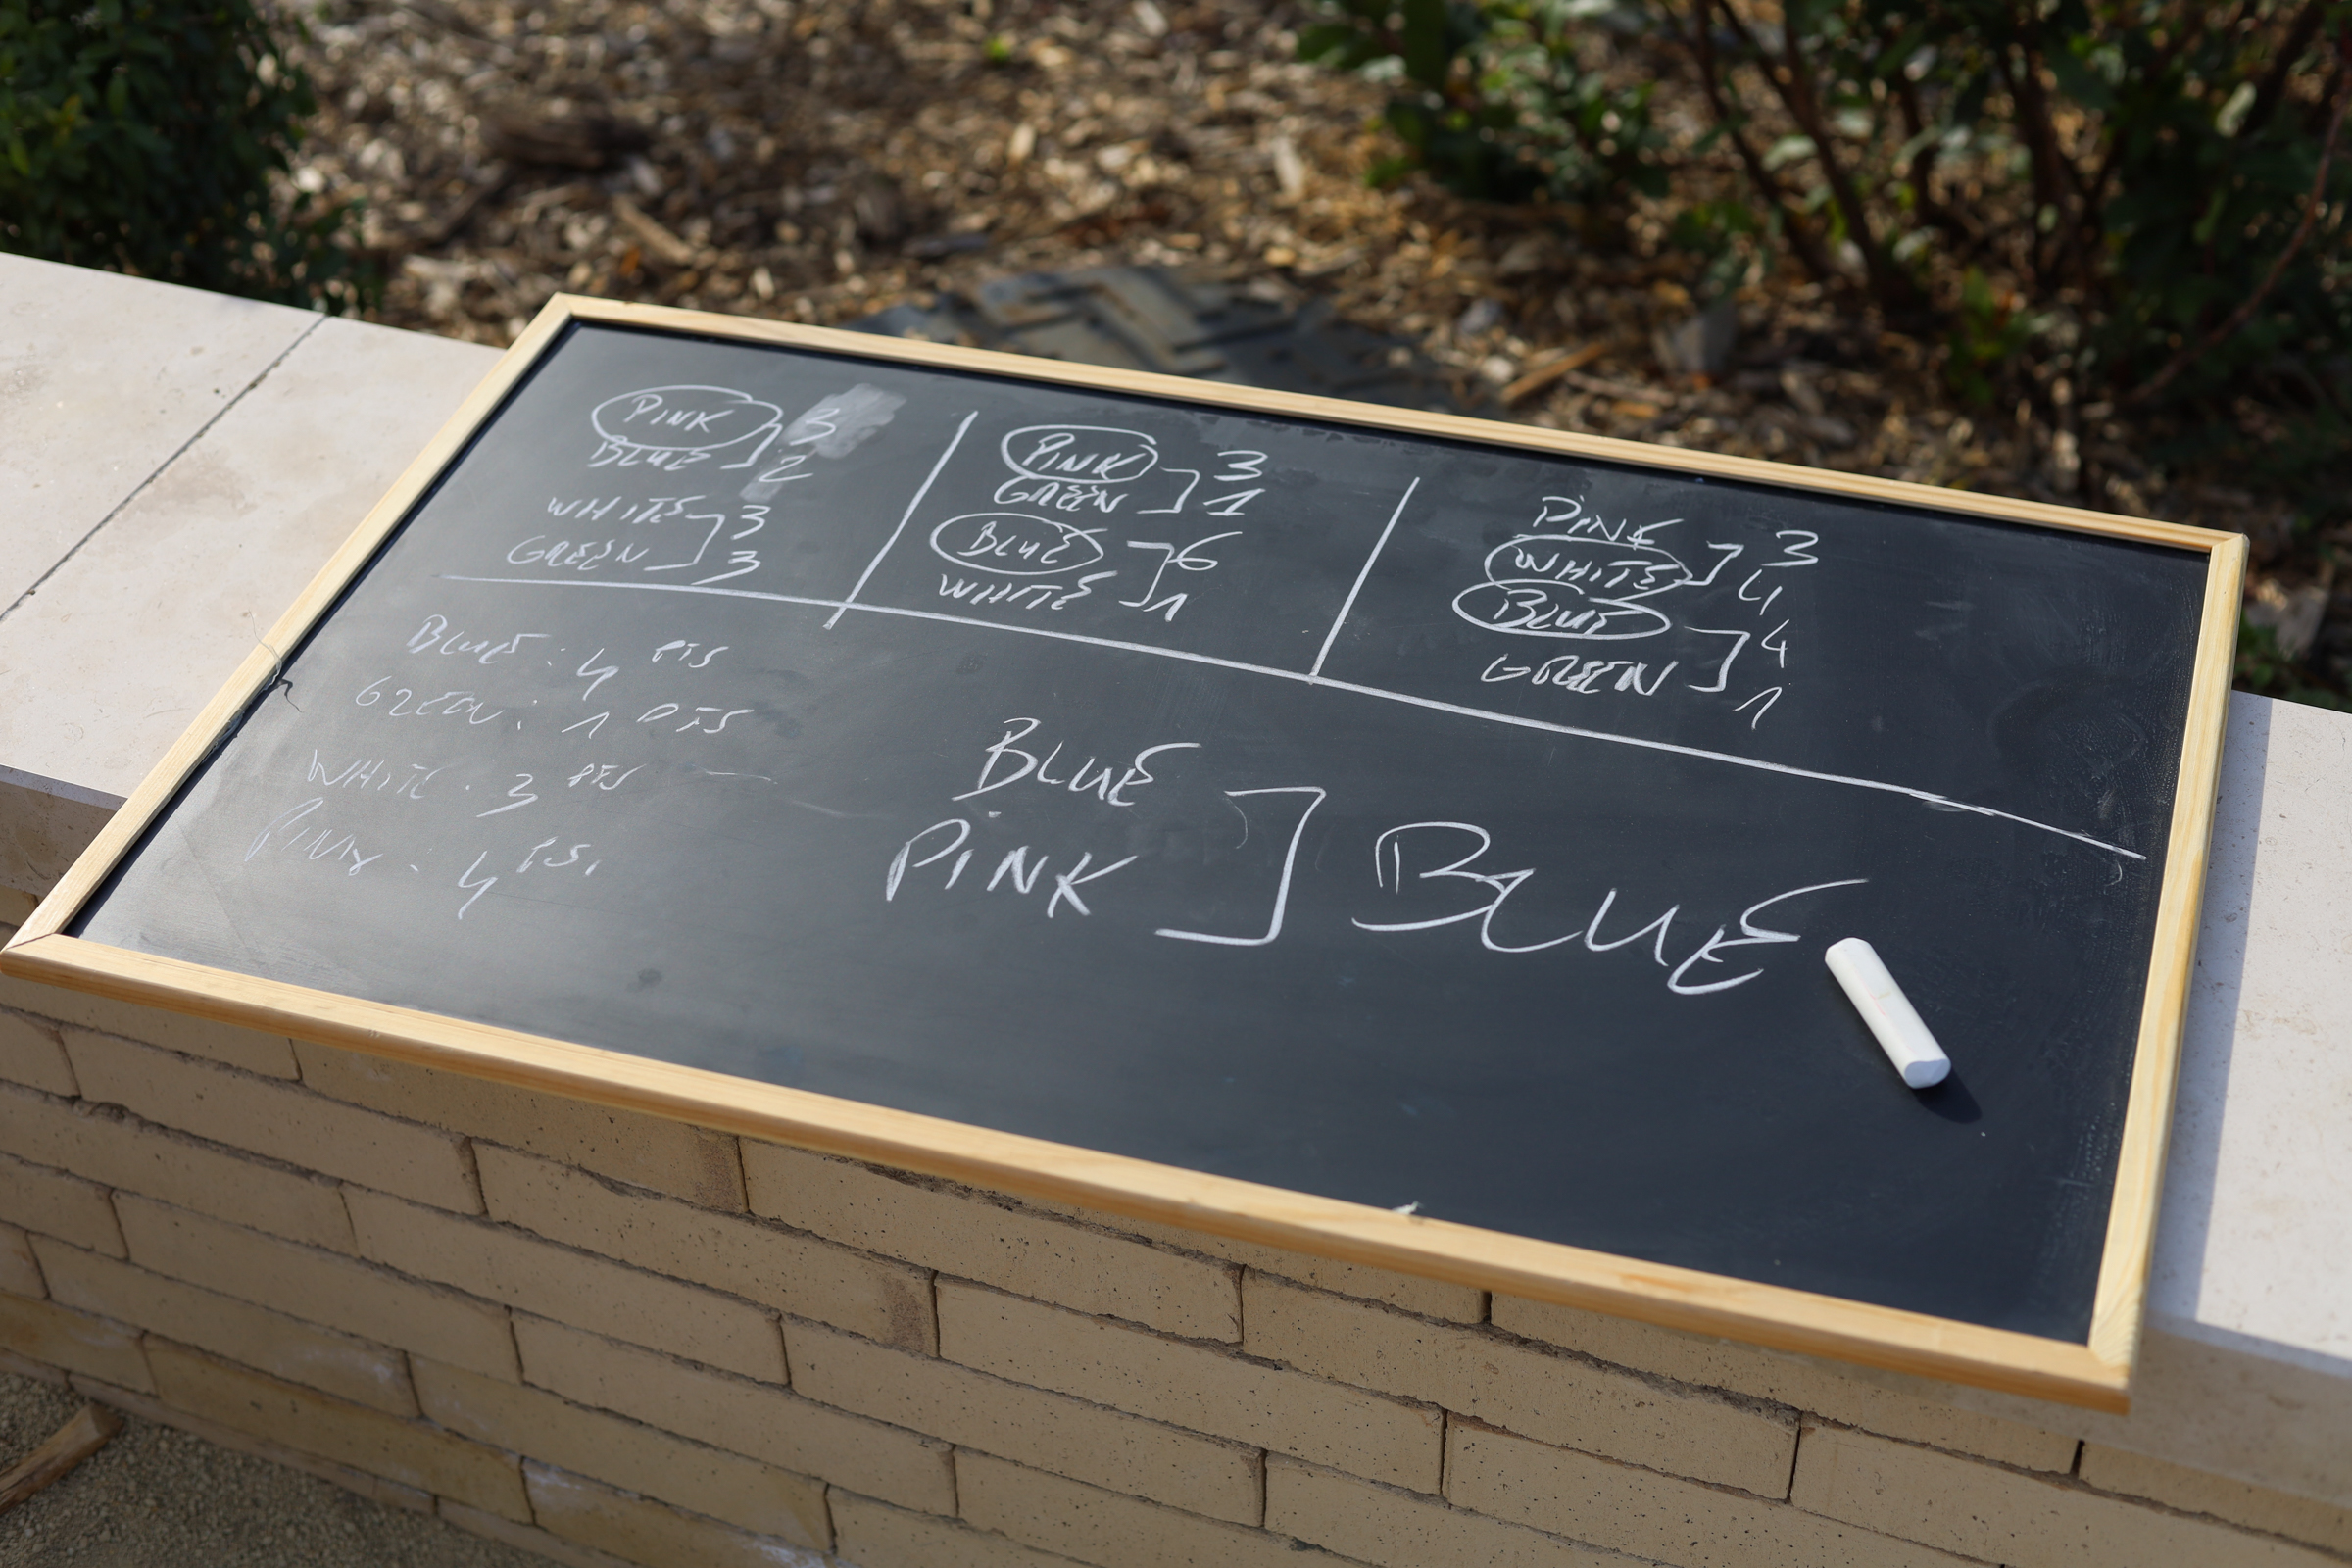 PINK 3
BLUE 2
WHITE 3
GREEN 3
PINK 3
GREEN 1
BLUE 6
WHITE 1
PINK 3
WHITE 4
BLUE 4
GREEN 1
BLUE : 4 PTS
GREEN : 1 PTS
WHITE : 3 PTS
PINK : 4 PTS.
BLUE
PINK
BLUE